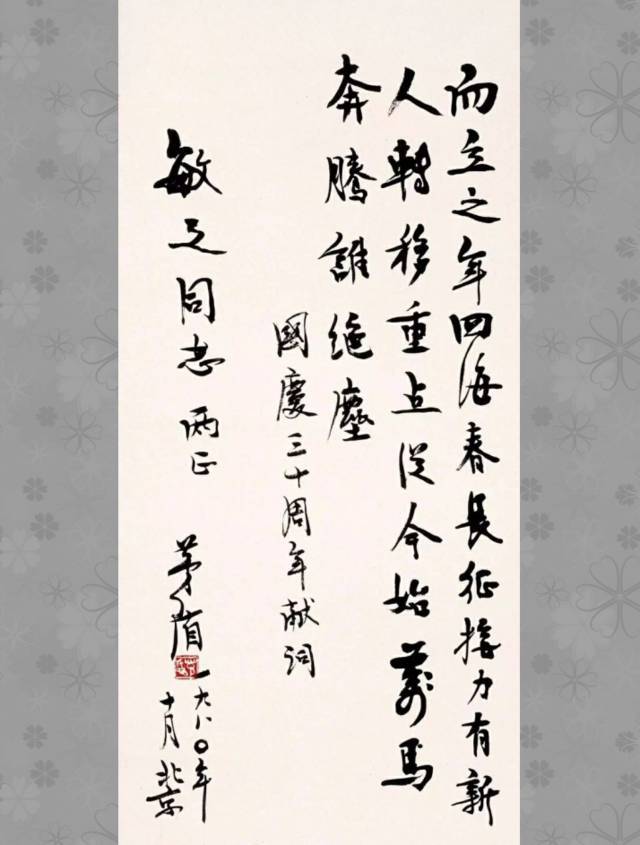 而立之年四海春長征接力有新
人轉移重点從今始萬馬
奔騰誰絶塵
國慶三十周年献詞
敏之同志两正
茅盾
一九八〇年
十月北京